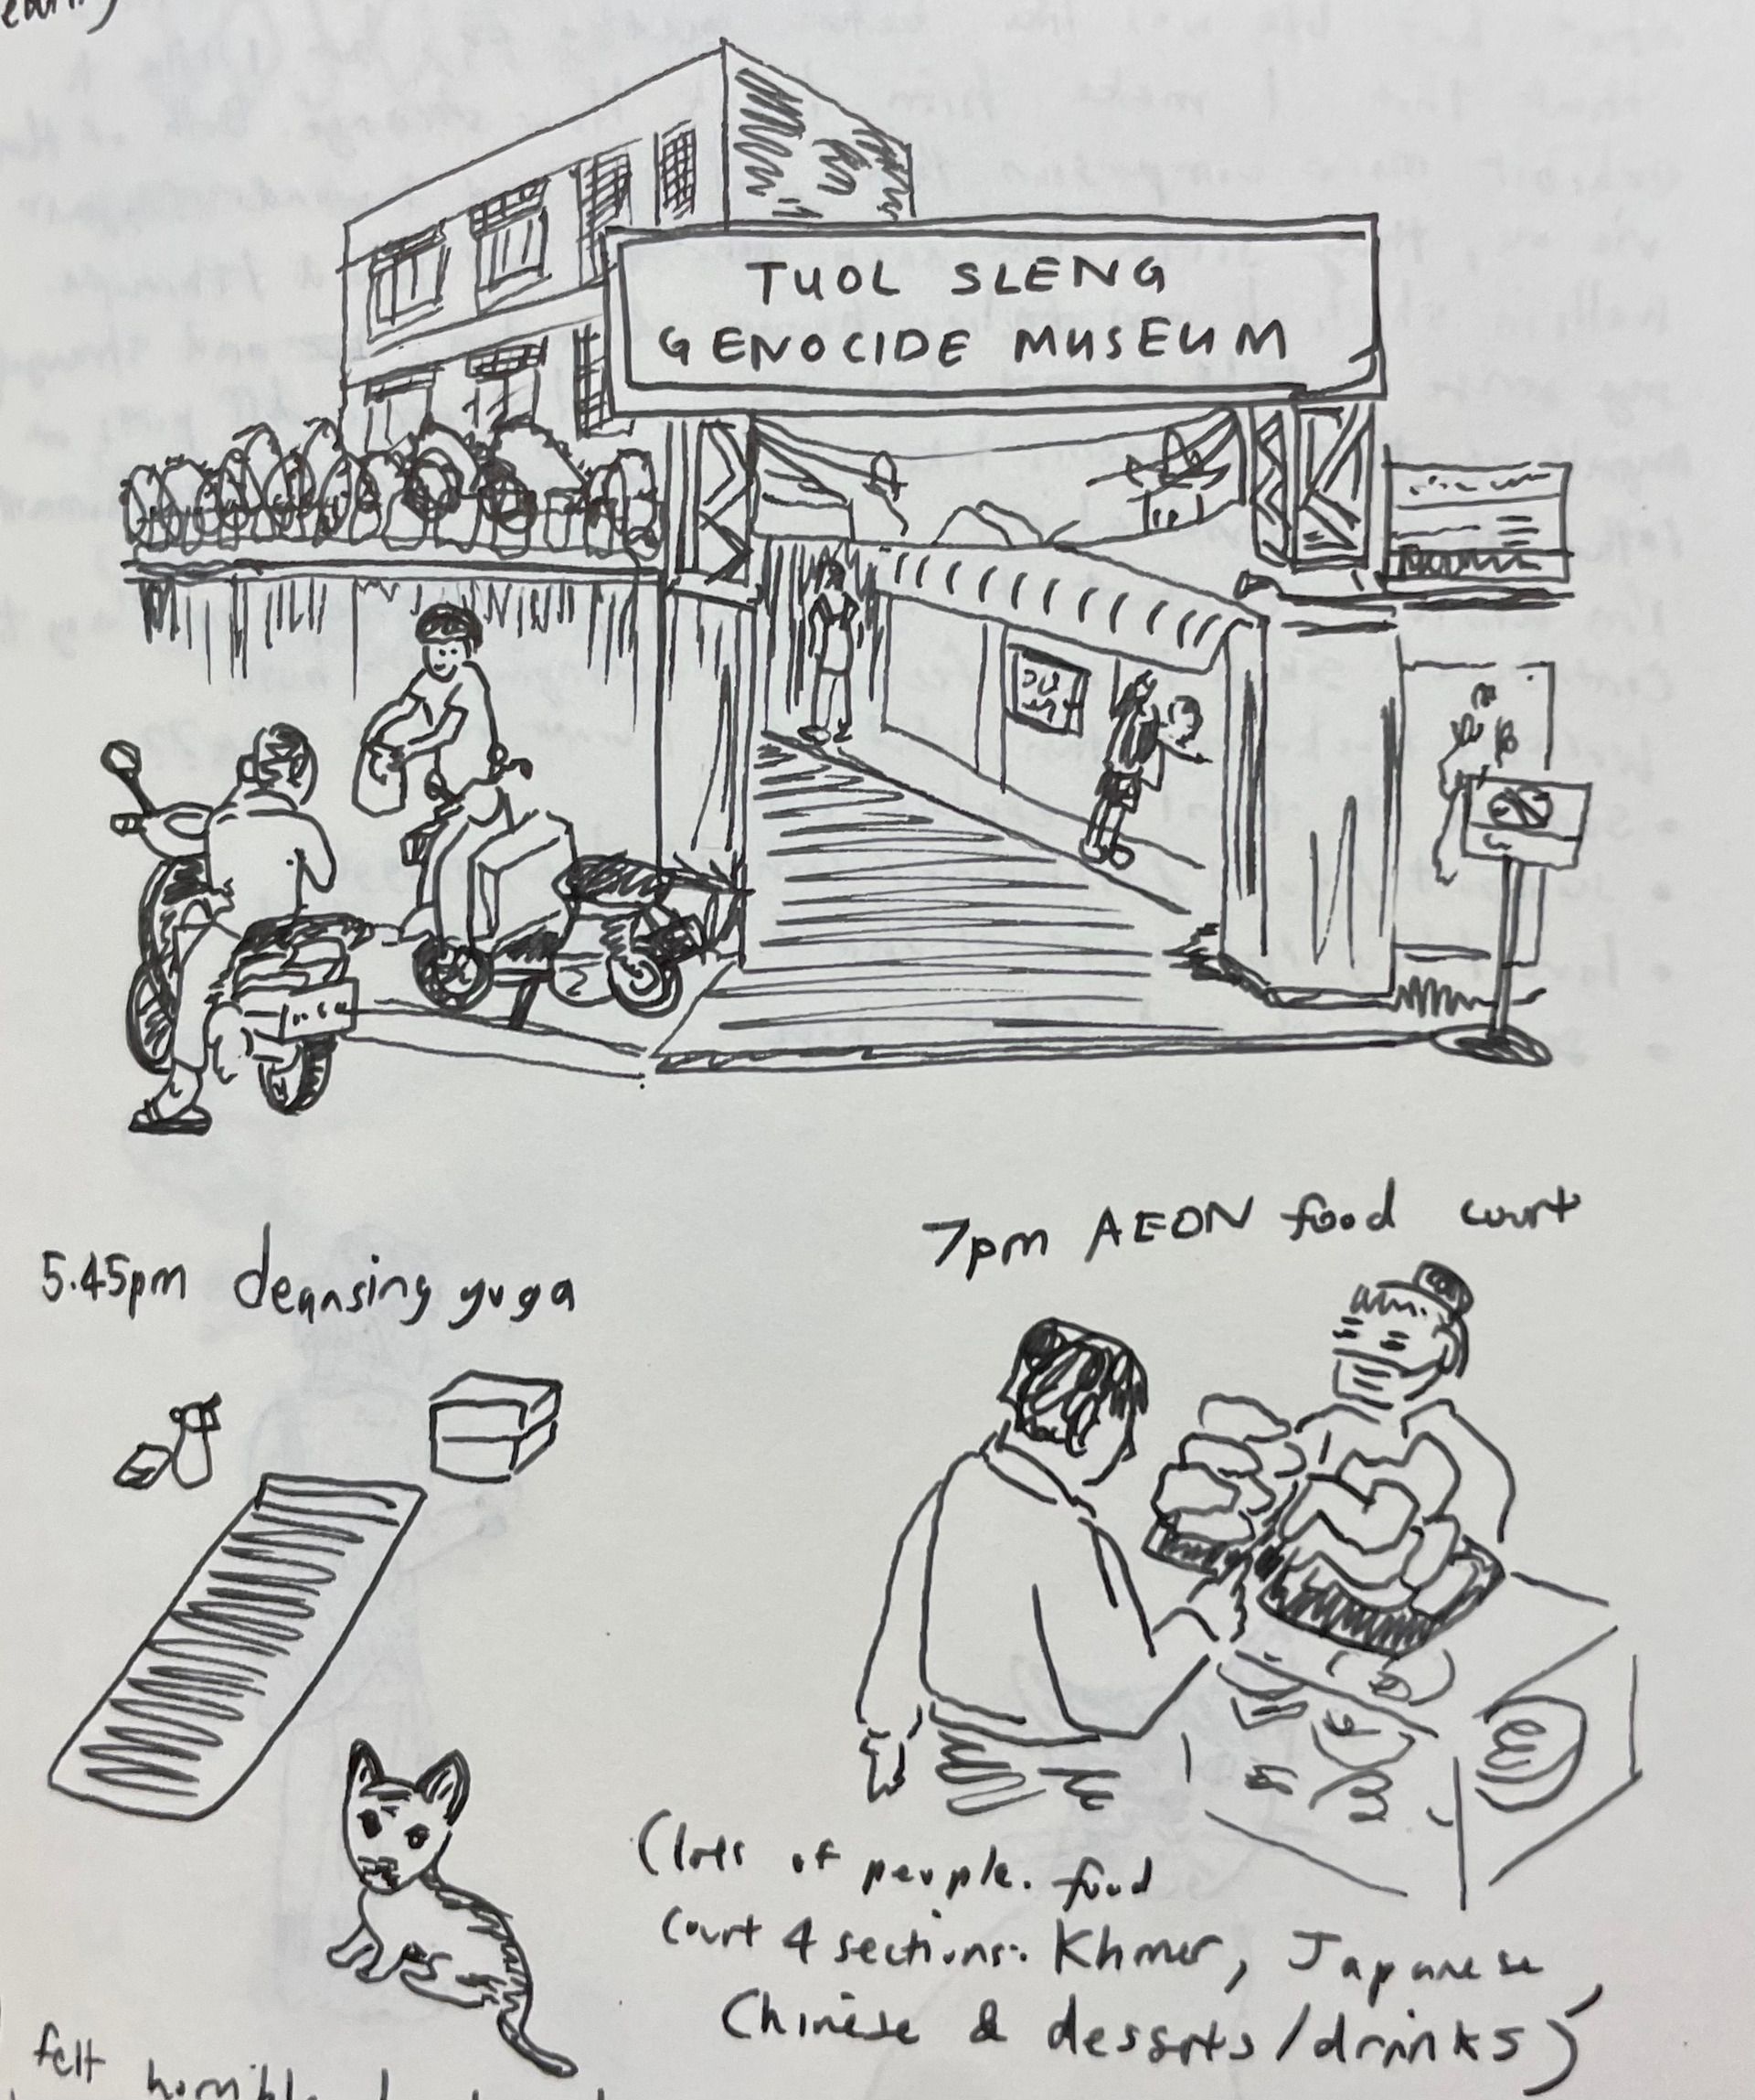 TUOL SLENG
GENOCIDE MUSEUM
5.45pm cleansing yoga
7pm AEON food court
(lots of people. food
court 4 sections: Khmer, Japanese,
Chinese & desserts/drinks)
felt horrible